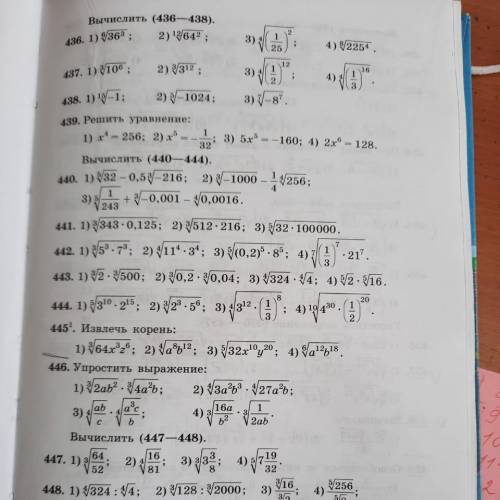 Вычислить (436—438).
436. 1) ⁶√36³; 2) ¹²√64²; 3) ⁴√(1/25)²; 4) ⁸√225⁴.
437. 1) ³√10⁶; 2) ³√3¹²; 3) ⁴√(1/2)¹²; 4) ⁴√(1/3)¹⁶.
438. 1) √−1; 2) ⁵√−1024; 3) ⁷√−8⁷.
439. Решить уравнение:
1) x⁴ = 256; 2) x⁵ = −1/32; 3) 5x⁵ = −160; 4) 2x⁶ = 128.
Вычислить (440—444).
440. 1) ⁵√32 − 0,5 ³√−216; 2) ³√−1000 − 1/4 ⁴√256;
3) ⁵√1/243 + ³√−0,001 − ⁴√0,0016.
441. 1) ³√343 · 0,125; 2) ³√512 · 216; 3) ⁵√32 · 100000.
442. 1) ³√5³ · 7³; 2) ⁴√11⁴ · 3⁴; 3) ⁵√(0,2)⁵ · 8⁵; 4) ⁷√(1/3)⁷ · 21⁷.
443. 1) ³√2 · ³√500; 2) ³√0,2 · ³√0,04; 3) ⁴√324 · ⁴√4; 4) ⁵√2 · ⁵√16.
444. 1) ⁵√3¹⁰ · 2¹⁵; 2) ³√2³ · 5⁶; 3) ⁴√3¹² · (1/3)⁸; 4) ¹⁰√4³⁰ · (1/2)²⁰.
445². Извлечь корень:
1) ³√64x³z⁶; 2) ⁴√a⁸b¹²; 3) ⁵√32x¹⁰y²⁰; 4) ⁶√a¹²b¹⁸.
446. Упростить выражение:
1) ³√2ab² · ³√4a²b; 2) ⁴√3a²b³ · ⁴√27a²b;
3) ⁴√ab/c · ⁴√a³c/b; 4) ³√16a/b² · ³√1/2ab.
Вычислить (447—448).
447. 1) ³√64/; 2) ⁴√16/81; 3) ³√3 3/8; 4) ⁵√7 19/32.
448. 1) ⁴√324 : ⁴√4; 2) ³√128 : ³√2000; 3) ³√16/; 4) ⁵√256/